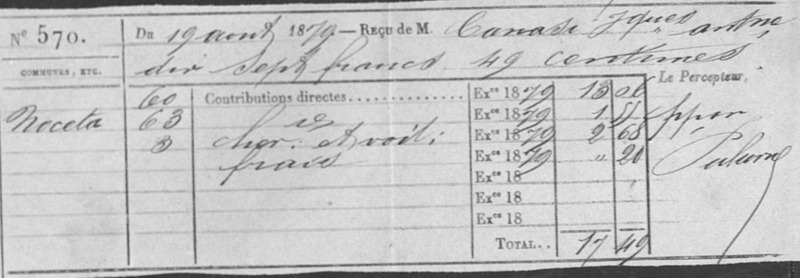 N° 570. Du 19 août 1879 — Reçu de M. Canasi Jques antne
dix sept francs 49 centimes.
COMMUNES, ETC. Le Percepteur,
60 Contributions directes Exce 1879 13 06
Noceta 63 Exce 1879 1 55 ppon
3 chev. et voit: Exce 1879 2 68
frais Exce 1879 " 20
Exce 18
Exce 18
Exce 18
TOTAL.. 17 49